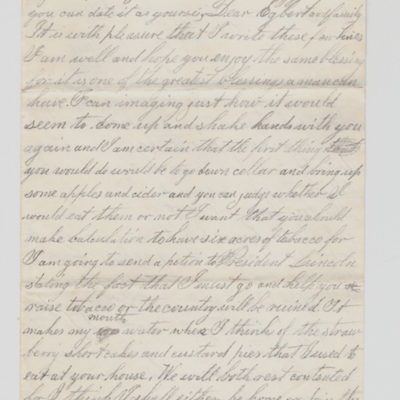 you can date it as yourself Dear Egbert and family
It is with pleasure that I write these few lines
I am well and hope you enjoy the same blessing
for it is one of the greatest blessings a man can
have. I can imaging just how it would
seem to come up and shake hands with you
again and I am certain that the first thing
you would do would be to go down cellar and bring up
some apples and cider and you can judge whether I
would eat them or not I want that you should
make calculation to have six acres of tobacco for
I am going to send a petion to President Lincoln
stating the fact that I must go and help you
raise tobacco or the country will be ruined It
makes my mouth water when I think of the straw
berry shortcakes and custard pies that I used to
eat at your house. We will both rest contented
for I think I shall either be home or